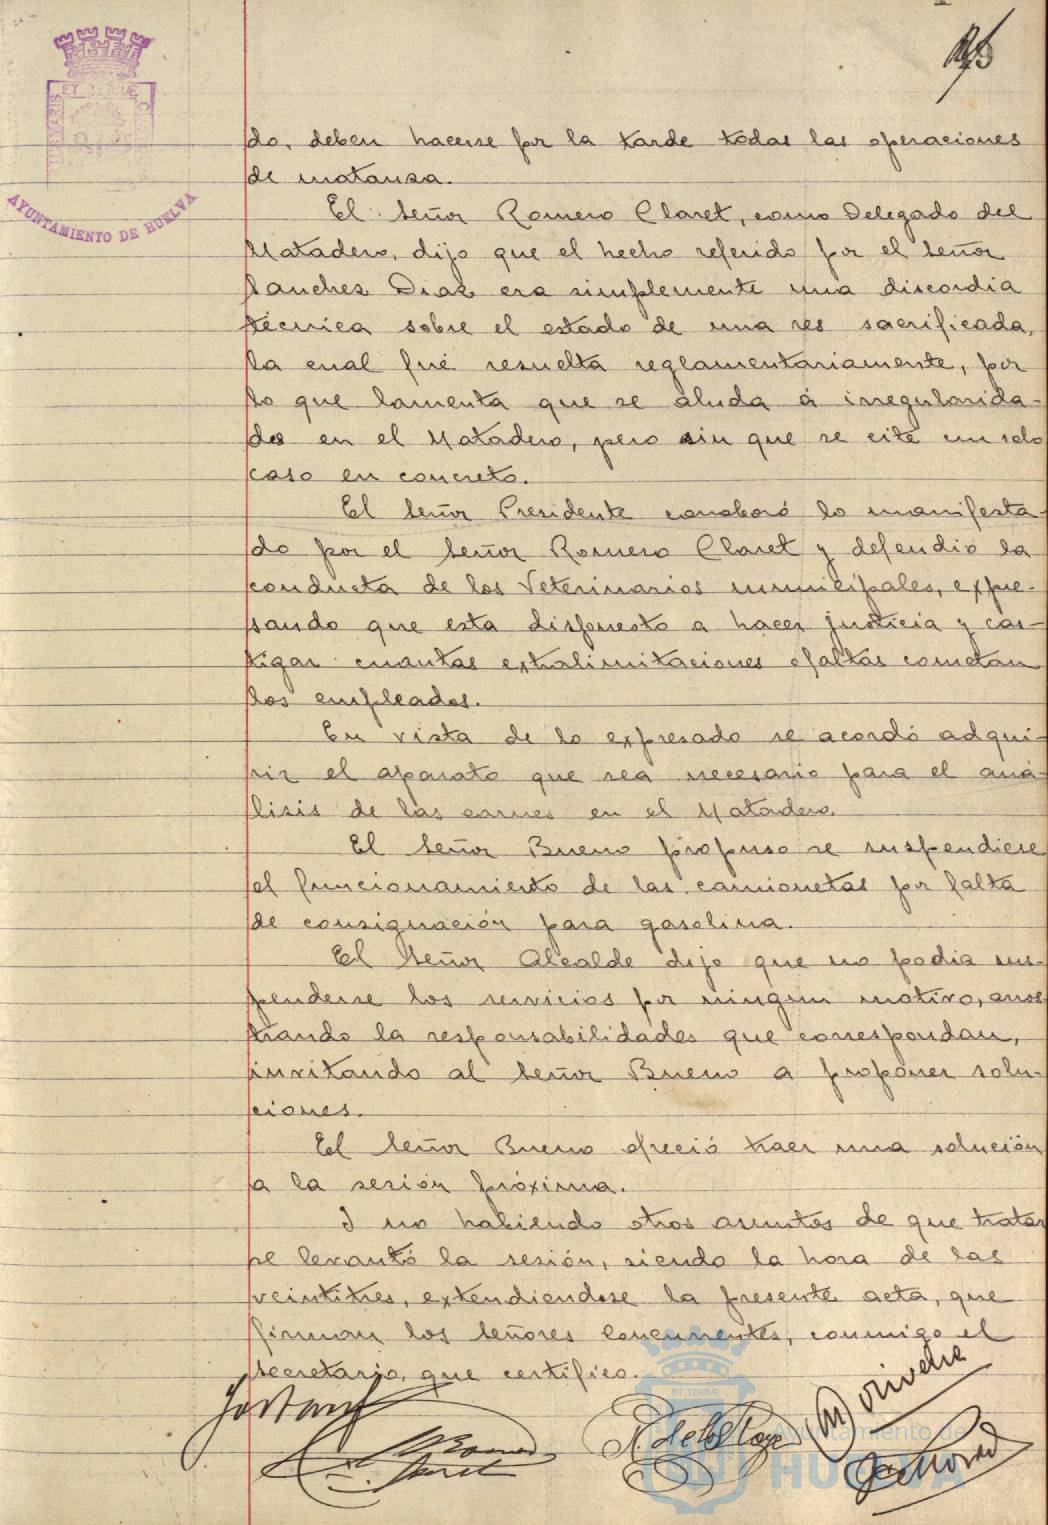 ET TERRÆ
AYUNTAMIENTO DE HUELVA
do, deben hacerse por la tarde todas las operaciones
de matansa.
El Señor Romero Claret, como Delegado del
Matadero, dijo que el hecho referido por el Señor
Sanchez Diaz era simplemente una discordia
técnica sobre el estado de una res sacrificada,
la cual fué resuelta reglamentariamente, por
lo que lamenta que se aluda á irregularida-
des en el Matadero, pero sin que se cite un solo
caso en concreto.
El Señor Presidente corroboró lo manifesta-
do por el Señor Romero Claret y defendió la
conducta de los Veterinarios municipales, expre-
sando que esta dispuesto a hacer justicia y cas-
tigar cuantas extralimitaciones o faltas cometan
los empleados.
En vista de lo expresado se acordó adqui-
rir el aparato que sea necesario para el aná-
lisis de las carnes en el Matadero.
El Señor Bueno propuso se suspendiese
el funcionamiento de las camionetas por falta
de consignación para gasolina.
El Señor Alcalde dijo que no podia sus-
penderse los servicios por ningun motivo, arros-
trando la responsabilidades que correspondan,
invitando al Señor Bueno a proponer solu-
ciones.
El Señor Bueno ofreció traer una solución
a la sesión próxima.
I no habiendo otros asuntos de que tratar
se levantó la sesión, siendo la hora de las
veintitres, extendiendose la presente acta, que
firman los Señores Concurrentes, conmigo el
Secretario, que certifico.
Romero
Claret
ET TERRÆ
Ayuntamiento de
HUELVA